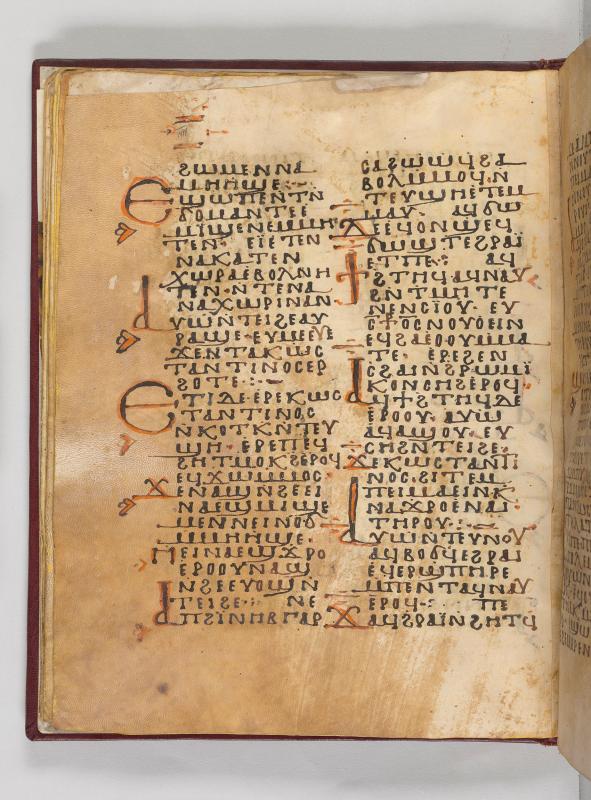 ϩⲱⲙⲉⲛⲛⲁ
ⲙⲏⲏϣⲉ·
ⲉϣⲱⲡⲉⲛⲧⲛ
ϭⲟⲙⲁⲛⲧⲉⲉ
ⲙⲓϣⲉⲛⲉⲙⲙⲏ
ⲧⲉⲛ· ⲉⲓⲉⲧⲉⲛ
ⲛⲁⲕⲁⲧⲉⲛ
ⲭⲱⲣⲁⲉⲃⲟⲗⲛⲏ
ⲧⲉⲛⲛⲧⲉⲛⲁ
ⲛⲁⲭⲱⲣⲓⲛⲁⲛ
ⲁⲩⲱⲛ̄ⲧⲉⲓϩⲉⲁⲩ
ⲣⲁϣⲉ·ⲉⲩⲙⲉⲉⲩⲉ
ϫⲉⲛⲧⲁⲕⲱⲥ
ⲧⲁⲛⲧⲓⲛⲟⲥⲉⲣ
ϩⲟⲧⲉ:
ⲉⲧⲓⲇⲉⲉⲣⲉⲕⲱⲥ
ⲧⲁⲛⲧⲓⲛⲟⲥ
ⲛ̄ⲕⲟⲧⲕⲛ̄ⲧⲉⲩ
ϣⲏ· ⲉⲣⲉⲡⲉϥ
ϩⲏⲧⲙⲟⲕϩⲉⲣⲟϥ
ⲉϥϫⲱⲙⲙⲟⲥ
ϫⲉⲛⲁϣⲛϩⲉⲉⲓ
ⲛⲁⲉϣⲙⲓϣⲉ
ⲙⲉⲛⲛⲉⲓⲛⲟϭ
ⲙⲙⲏⲏϣⲉ·
ⲙⲉⲓⲛⲁⲉϣϫⲣⲟ
ⲉⲣⲟⲟⲩⲛⲁϣ
ⲛϩⲉⲉⲩⲟϣⲛ̄
ⲧⲉⲓϩⲉ: ⲛⲉ
ⲁⲡϩⲓⲛⲏⲃⲅⲁⲣ
ⲥⲁϩⲱⲱϥϩⲁ
ⲃⲟⲗⲙⲙⲟϥ·ⲛ
ⲧⲉⲩϣⲏⲉⲧⲉⲙ
ⲙⲁⲩ· ⲁϥϭⲱ
ϭⲱϣⲧⲉϩⲣⲁⲓ̈
ⲉⲧⲡⲉ: ⲁϥ
ϯϩⲧⲏϥⲁϥⲛⲁⲩ
ϩⲛⲧⲙⲏⲧⲉ
ⲛⲉⲛⲥⲓⲟⲩ· ⲉⲩ
ⲥϯⲟⲥⲛⲟⲩⲟⲉⲓⲛ
ⲉϥϩⲁⲉⲟⲟⲩⲙⲙⲁ
ⲧⲉ· ⲉⲣⲉϩⲉⲛ
ⲥϩⲁⲓⲛ̄ϩⲣⲱⲙⲁⲓ̈
ⲕⲟⲛⲥⲏϩⲉⲣⲟϥ·
ⲁϥϯϩⲧⲏϥⲇⲉ
ⲉⲣⲟⲟⲩ· ⲁⲩⲱ
ⲁϥⲁϣⲟⲩ·ⲉⲩ
ⲥⲏϩⲛⲧⲉⲓϩⲉ·
ϫⲉⲕⲱⲥⲧⲁⲛⲧⲓ
ⲛⲟⲥ·ϩⲓⲧⲉⲙ
ⲡⲉⲓⲙⲁⲉⲓⲛⲕ
ⲛⲁϫⲣⲟⲉⲛⲁⲓ
ⲧⲏⲣⲟⲩ·
ⲁⲩⲱⲛⲧⲉⲩⲛⲟⲩ
ⲁϥⲃⲟϭϥⲉϩⲣⲁⲓ
ⲉϥⲉⲣϣⲡⲏⲣⲉ
ⲙⲡⲉⲛⲧⲁϥⲛⲁⲩ
ⲉⲣⲟϥ: ⲡⲉ
ϫⲁϥϩⲣⲁⲓ̈ⲛϩⲏⲧϥ